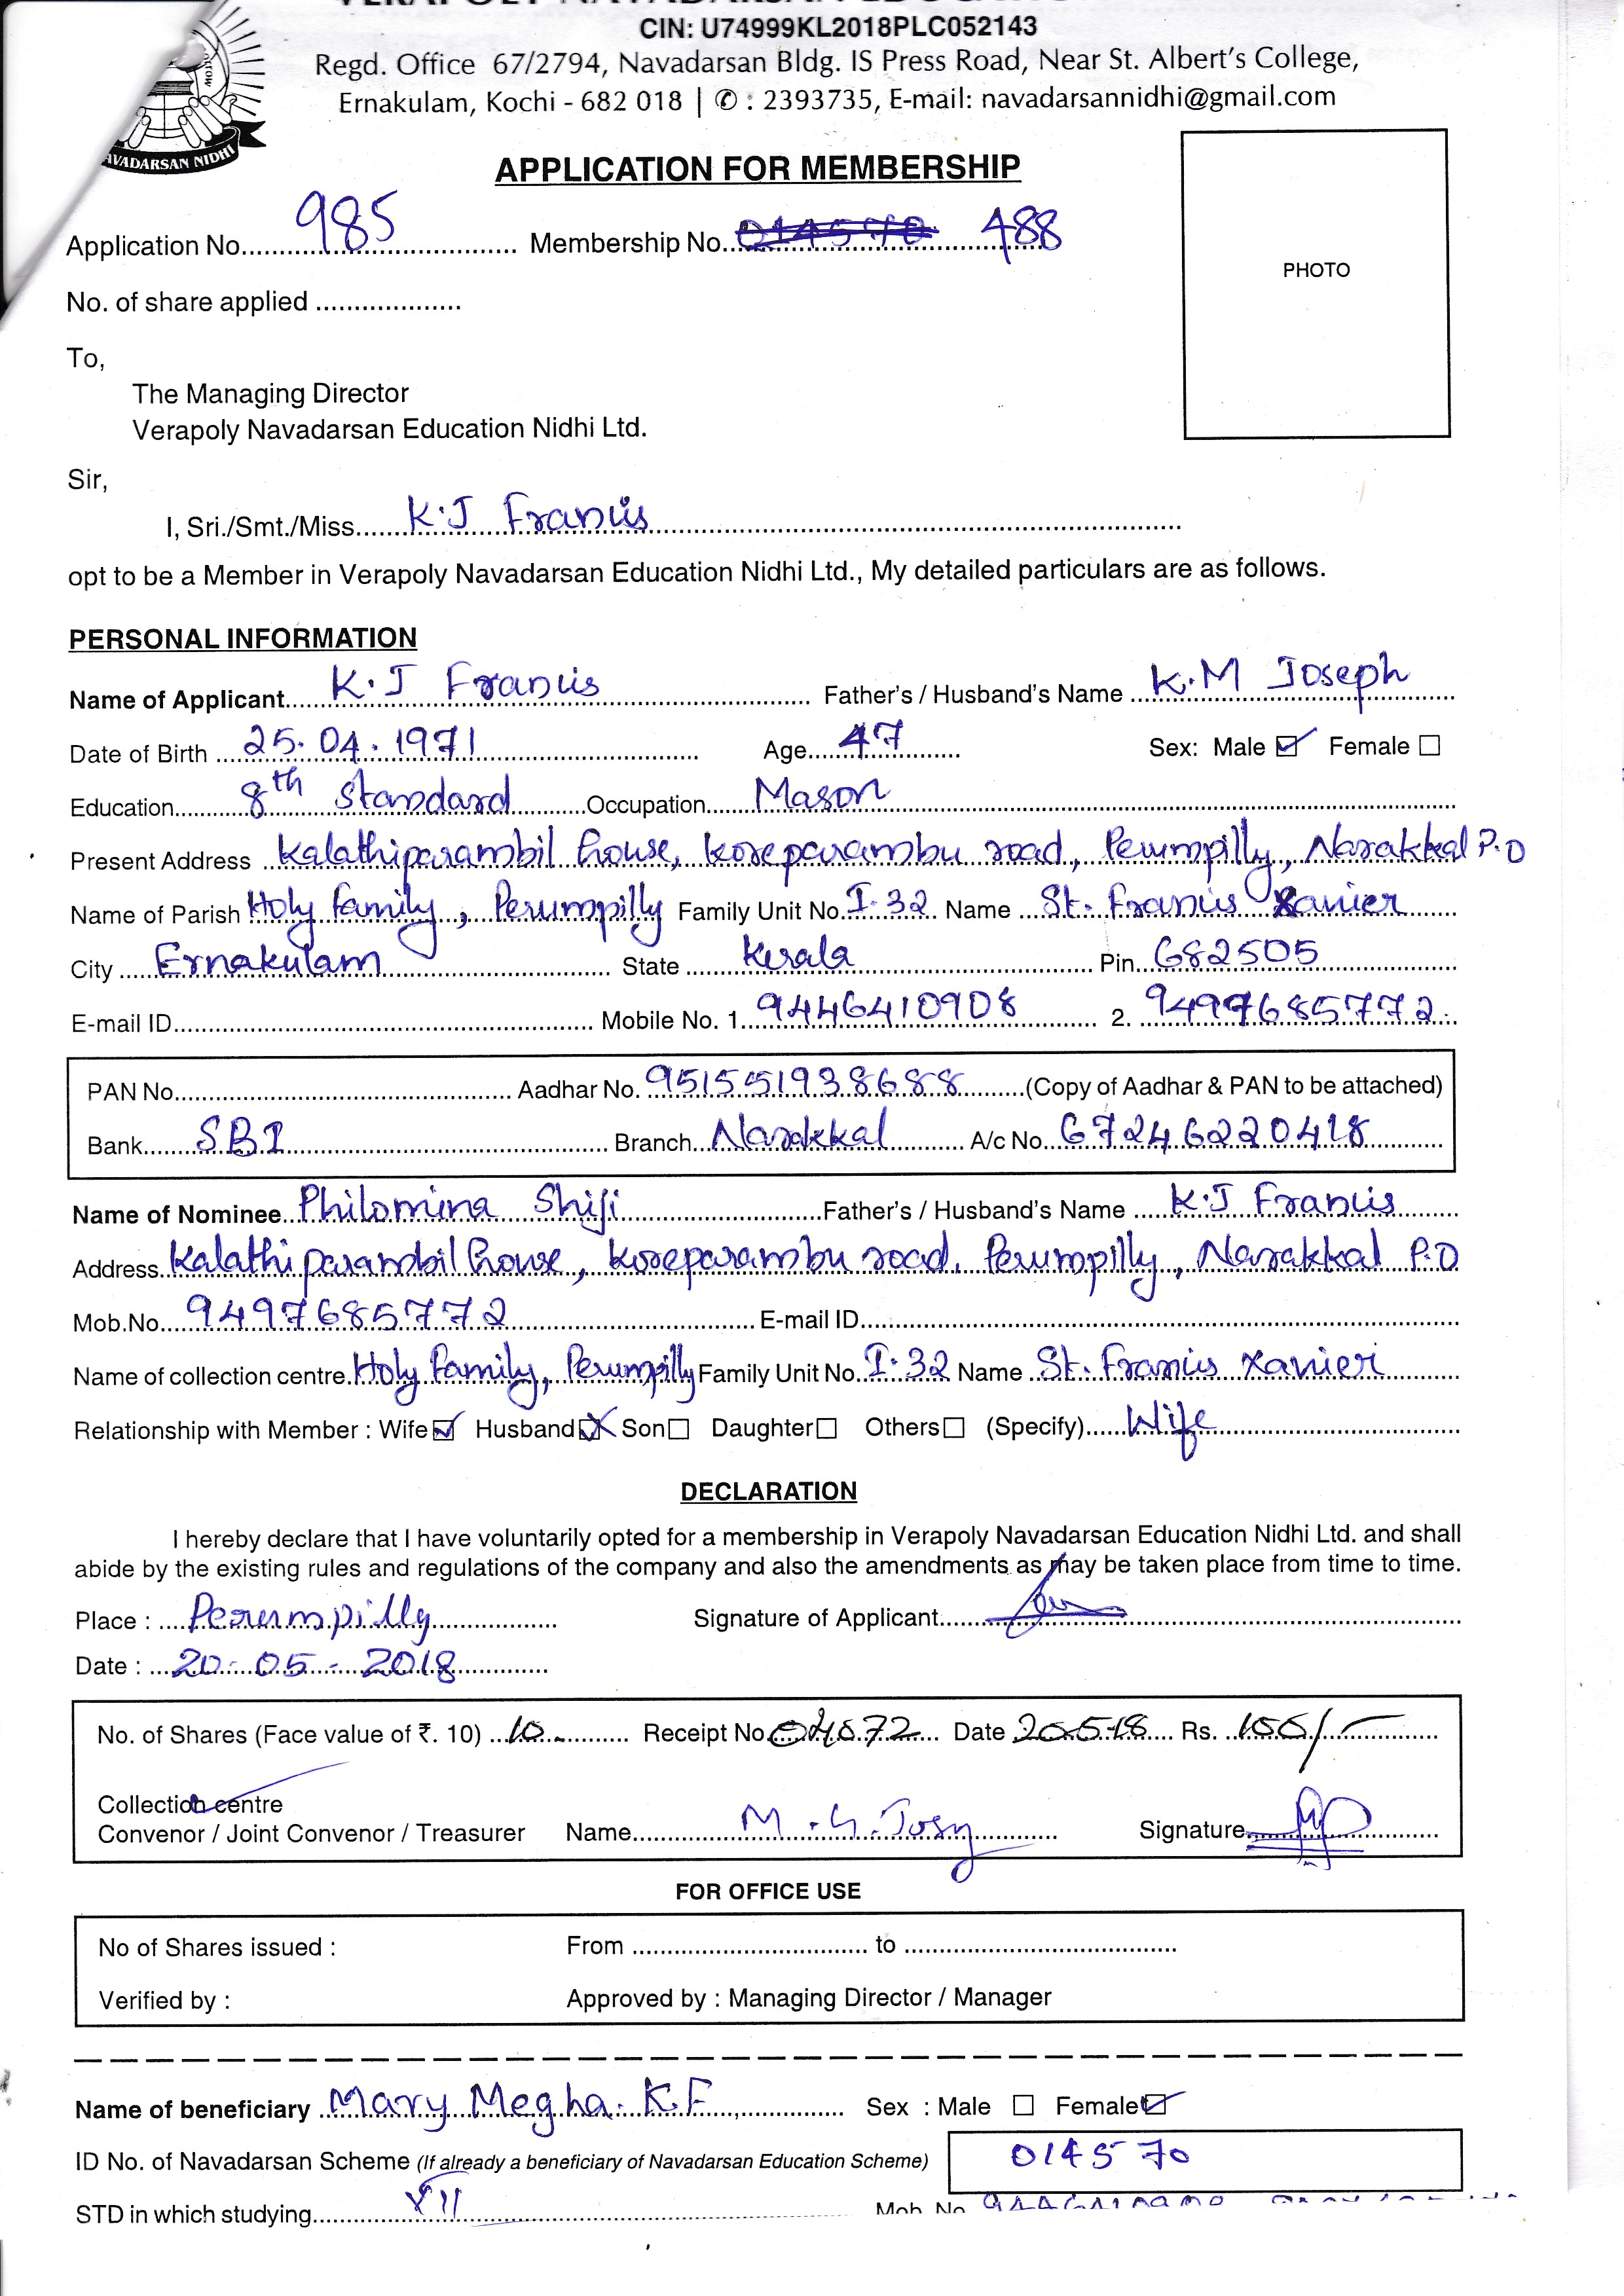 CIN: U74999KL2018PLC052143
Regd. Office 67/2794, Navadarsan Bldg. IS Press Road, Near St. Albert's College,
Ernakulam, Kochi - 682 018 | ✆ : 2393735, E-mail: navadarsannidhi@gmail.com
NAVADARSAN NIDHI
APPLICATION FOR MEMBERSHIP
Application No. 985 Membership No. 014570 488
No. of share applied
PHOTO
To,
The Managing Director
Verapoly Navadarsan Education Nidhi Ltd.
Sir,
I, Sri./Smt./Miss. K.J Francis
opt to be a Member in Verapoly Navadarsan Education Nidhi Ltd., My detailed particulars are as follows.
PERSONAL INFORMATION
Name of Applicant K.J Francis Father's / Husband's Name K.M Joseph
Date of Birth 25.04.1971 Age 47 Sex: Male ☑ Female ☐
Education 8th Standard Occupation Mason
Present Address Kalathiparambil house, koreparambu road, Perumpilly, Narakkal P.O
Name of Parish Holy family, Perumpilly Family Unit No. I-32 Name St. Francis Xavier
City Ernakulam State Kerala Pin 682505
E-mail ID Mobile No. 1. 9446410908 2. 9497685772
PAN No. Aadhar No. 951551938688 (Copy of Aadhar & PAN to be attached)
Bank SBI Branch Narakkal A/c No. 67246220418
Name of Nominee Philomina Shiji Father's / Husband's Name K.J Francis
Address Kalathiparambil house, koreparambu road, Perumpilly, Narakkal P.O
Mob.No. 9497685772 E-mail ID
Name of collection centre Holy family, Perumpilly Family Unit No. I-32 Name St. Francis Xavier
Relationship with Member : Wife ☑ Husband ☒ Son ☐ Daughter ☐ Others ☐ (Specify) Wife
DECLARATION
I hereby declare that I have voluntarily opted for a membership in Verapoly Navadarsan Education Nidhi Ltd. and shall
abide by the existing rules and regulations of the company and also the amendments as may be taken place from time to time.
Place : Perumpilly Signature of Applicant
Date : 20-05-2018
No. of Shares (Face value of ₹. 10) 10 Receipt No. 04072 Date 20.5.18 Rs. 100/-
Collection centre
Convenor / Joint Convenor / Treasurer Name M.G.Josy Signature
FOR OFFICE USE
No of Shares issued : From to
Verified by : Approved by : Managing Director / Manager
Name of beneficiary Mary Megha. K.F Sex : Male ☐ Female ☑
ID No. of Navadarsan Scheme (If already a beneficiary of Navadarsan Education Scheme) 014570
STD in which studying VII Mob No